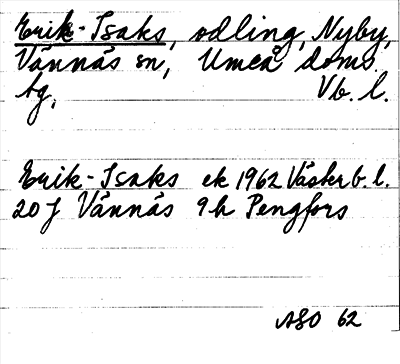 Erik-Isaks, odling, Nyby,
Vännäs sn, Umeå doms.
tg, Vb. l.
Erik-Isaks ek 1962 Västerb. l.
20 J Vännäs 9h Pengfors
ASO 62